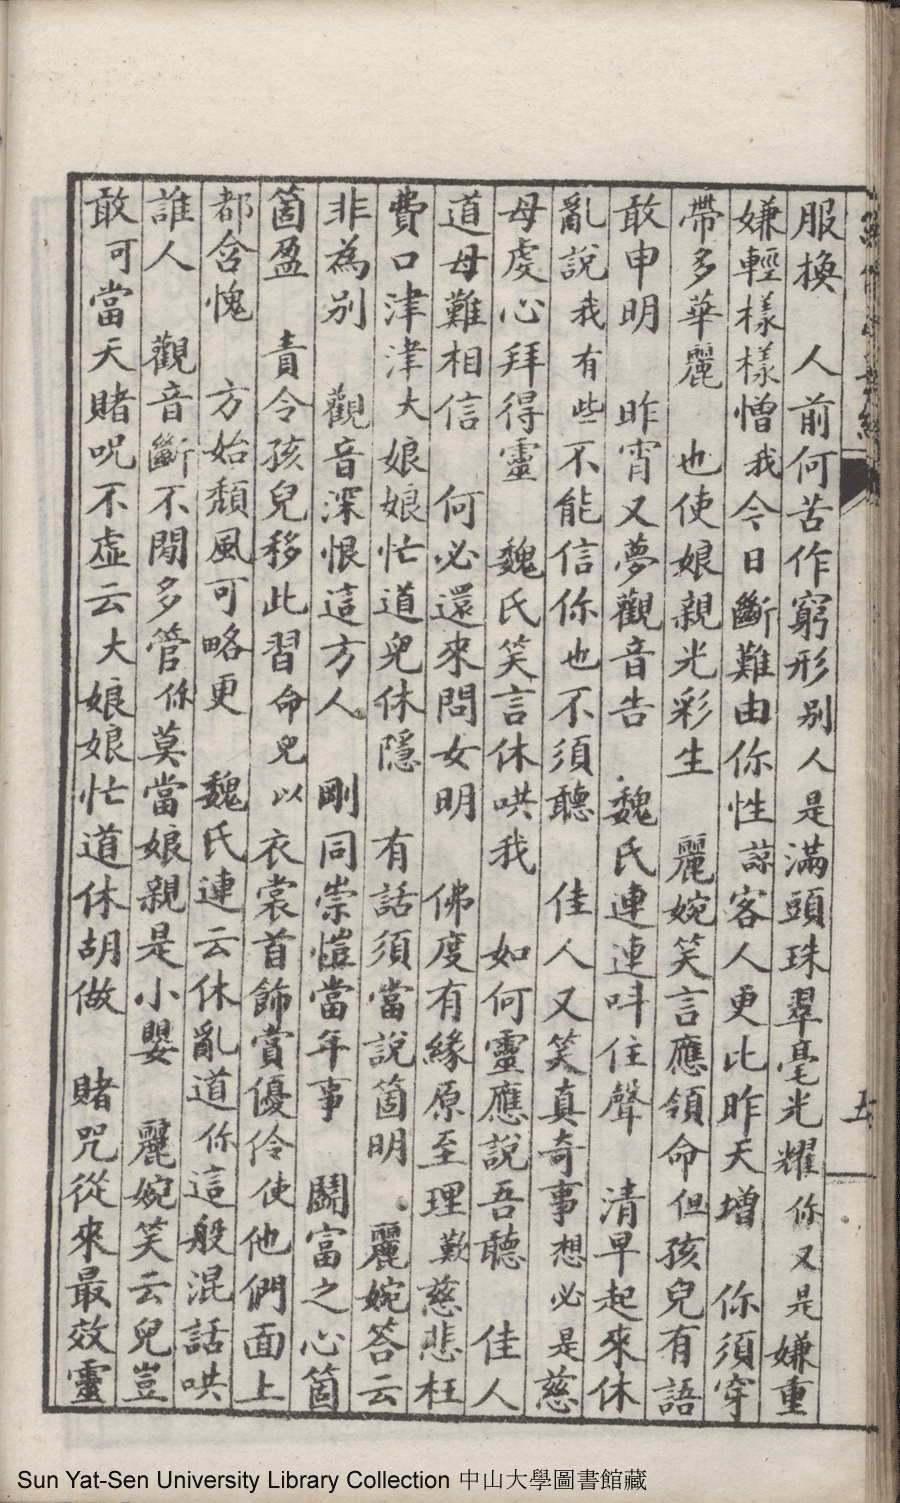 五
服換　人前何苦作窮形别人是滿頭珠翠毫光耀你又是嫌重
嫌輕樣樣憎我今日斷難由你性諒客人更比昨天增　你須穿
帶多華麗　也使娘親光彩生　麗婉笑言應領命但孩兒有語
敢申明　昨宵又夢觀音告　魏氏連連呌住聲　清早起來休
亂說我有些不能信你也不須聽　佳人又笑真奇事想必是慈
母虔心拜得靈　魏氏笑言休哄我　如何靈應說吾聽　佳人
道母難相信　何必還來問女明　佛度有緣原至理歎慈悲枉
費口津津大娘娘忙道兒休隱　有話須當說箇明　麗婉答云
非為别　觀音深恨這方人　剛同崇愷當年事　鬬富之心箇
箇盈　責令孩兒移此習命兒以衣裳首飾賞優伶使他們面上
都含愧　方始頽風可略更　魏氏連云休亂道你這般混話哄
誰人　觀音斷不閒多管你莫當娘親是小嬰　麗婉笑云兒豈
敢可當天賭呪不虛云大娘娘忙道休胡做　賭咒從來最效靈
Sun Yat-Sen University Library Collection 中山大學圖書館藏